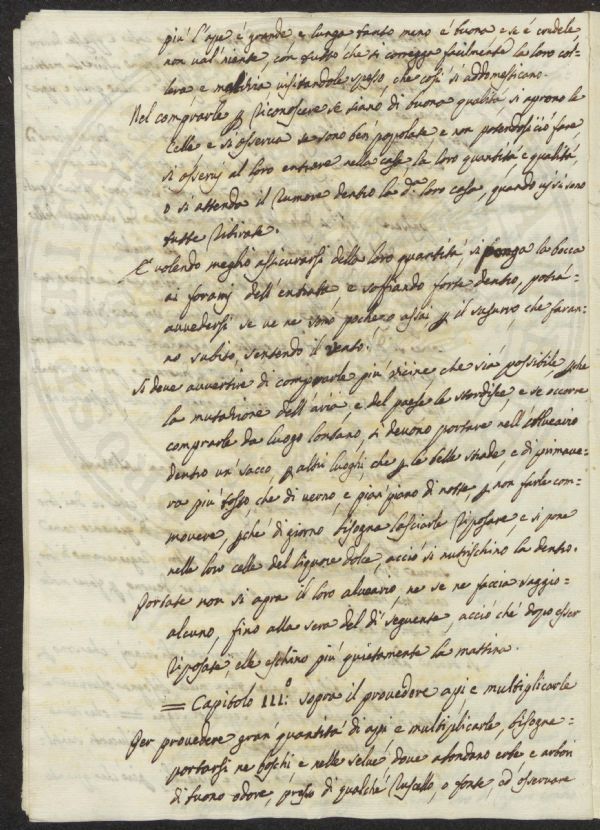 più l'ape è grande e lunga tanto meno è buona e se è crudele
non val niente, con tutto che si corregga facilmente la loro col-
lera e malizia visitandole spesso, che così si addomesticano.
Nel comprarle p riconoscere se siano di buona qualità si aprono le
Celle e si osserva se sono ben popolate e non potendosi ciò fare
si osservj al loro entrare nella casse la loro quantità, e qualità,
o si attenda il rumore dentro la d.a loro casa, quando vi si sono
tutte ritirate.
E volendo meglio assicurarsi della loro quantità si ponga la bocca
ai foramj dell'entrate e soffiando forte dentro, potrà-
avvedersi se ve ne sono poche o assai p il susurro che faran-
no subito, sentendo il vento.
Si deve avvertire di comprarle più vicine, che sia possibile pche
la mutazione dell'aria e del paese le stordisce, e se occorre
comprarle da luogo lontano, si devono portare nell'alveario
dentro un sacco, p altri luoghi, che p le belle strade, e di primave-
ra più tosto, che di verno, e pian piano di notte, p non farle com-
movere, pche di giorno bisogna lasciarle riposare, e si pone
nelle loro celle del liquore dolce, acciò si nutrischino la dentro.
Portate non si apra il loro alveario, ne se ne faccia saggio-
alcuno, fino alla sera del dì seguente, acciò che dopo esser
riposate, elle eschino più quietamente la mattina.
= Capitolo III.o sopra il provedere apj e multiplicarle
Per provedere gran quantità di apj e multiplicarle, bisogna-
portarsi ne boschi e nelle selve dove abondano erbe e arbori
di buono odore, presso di qualche ruscello, o fonte, ed osservare